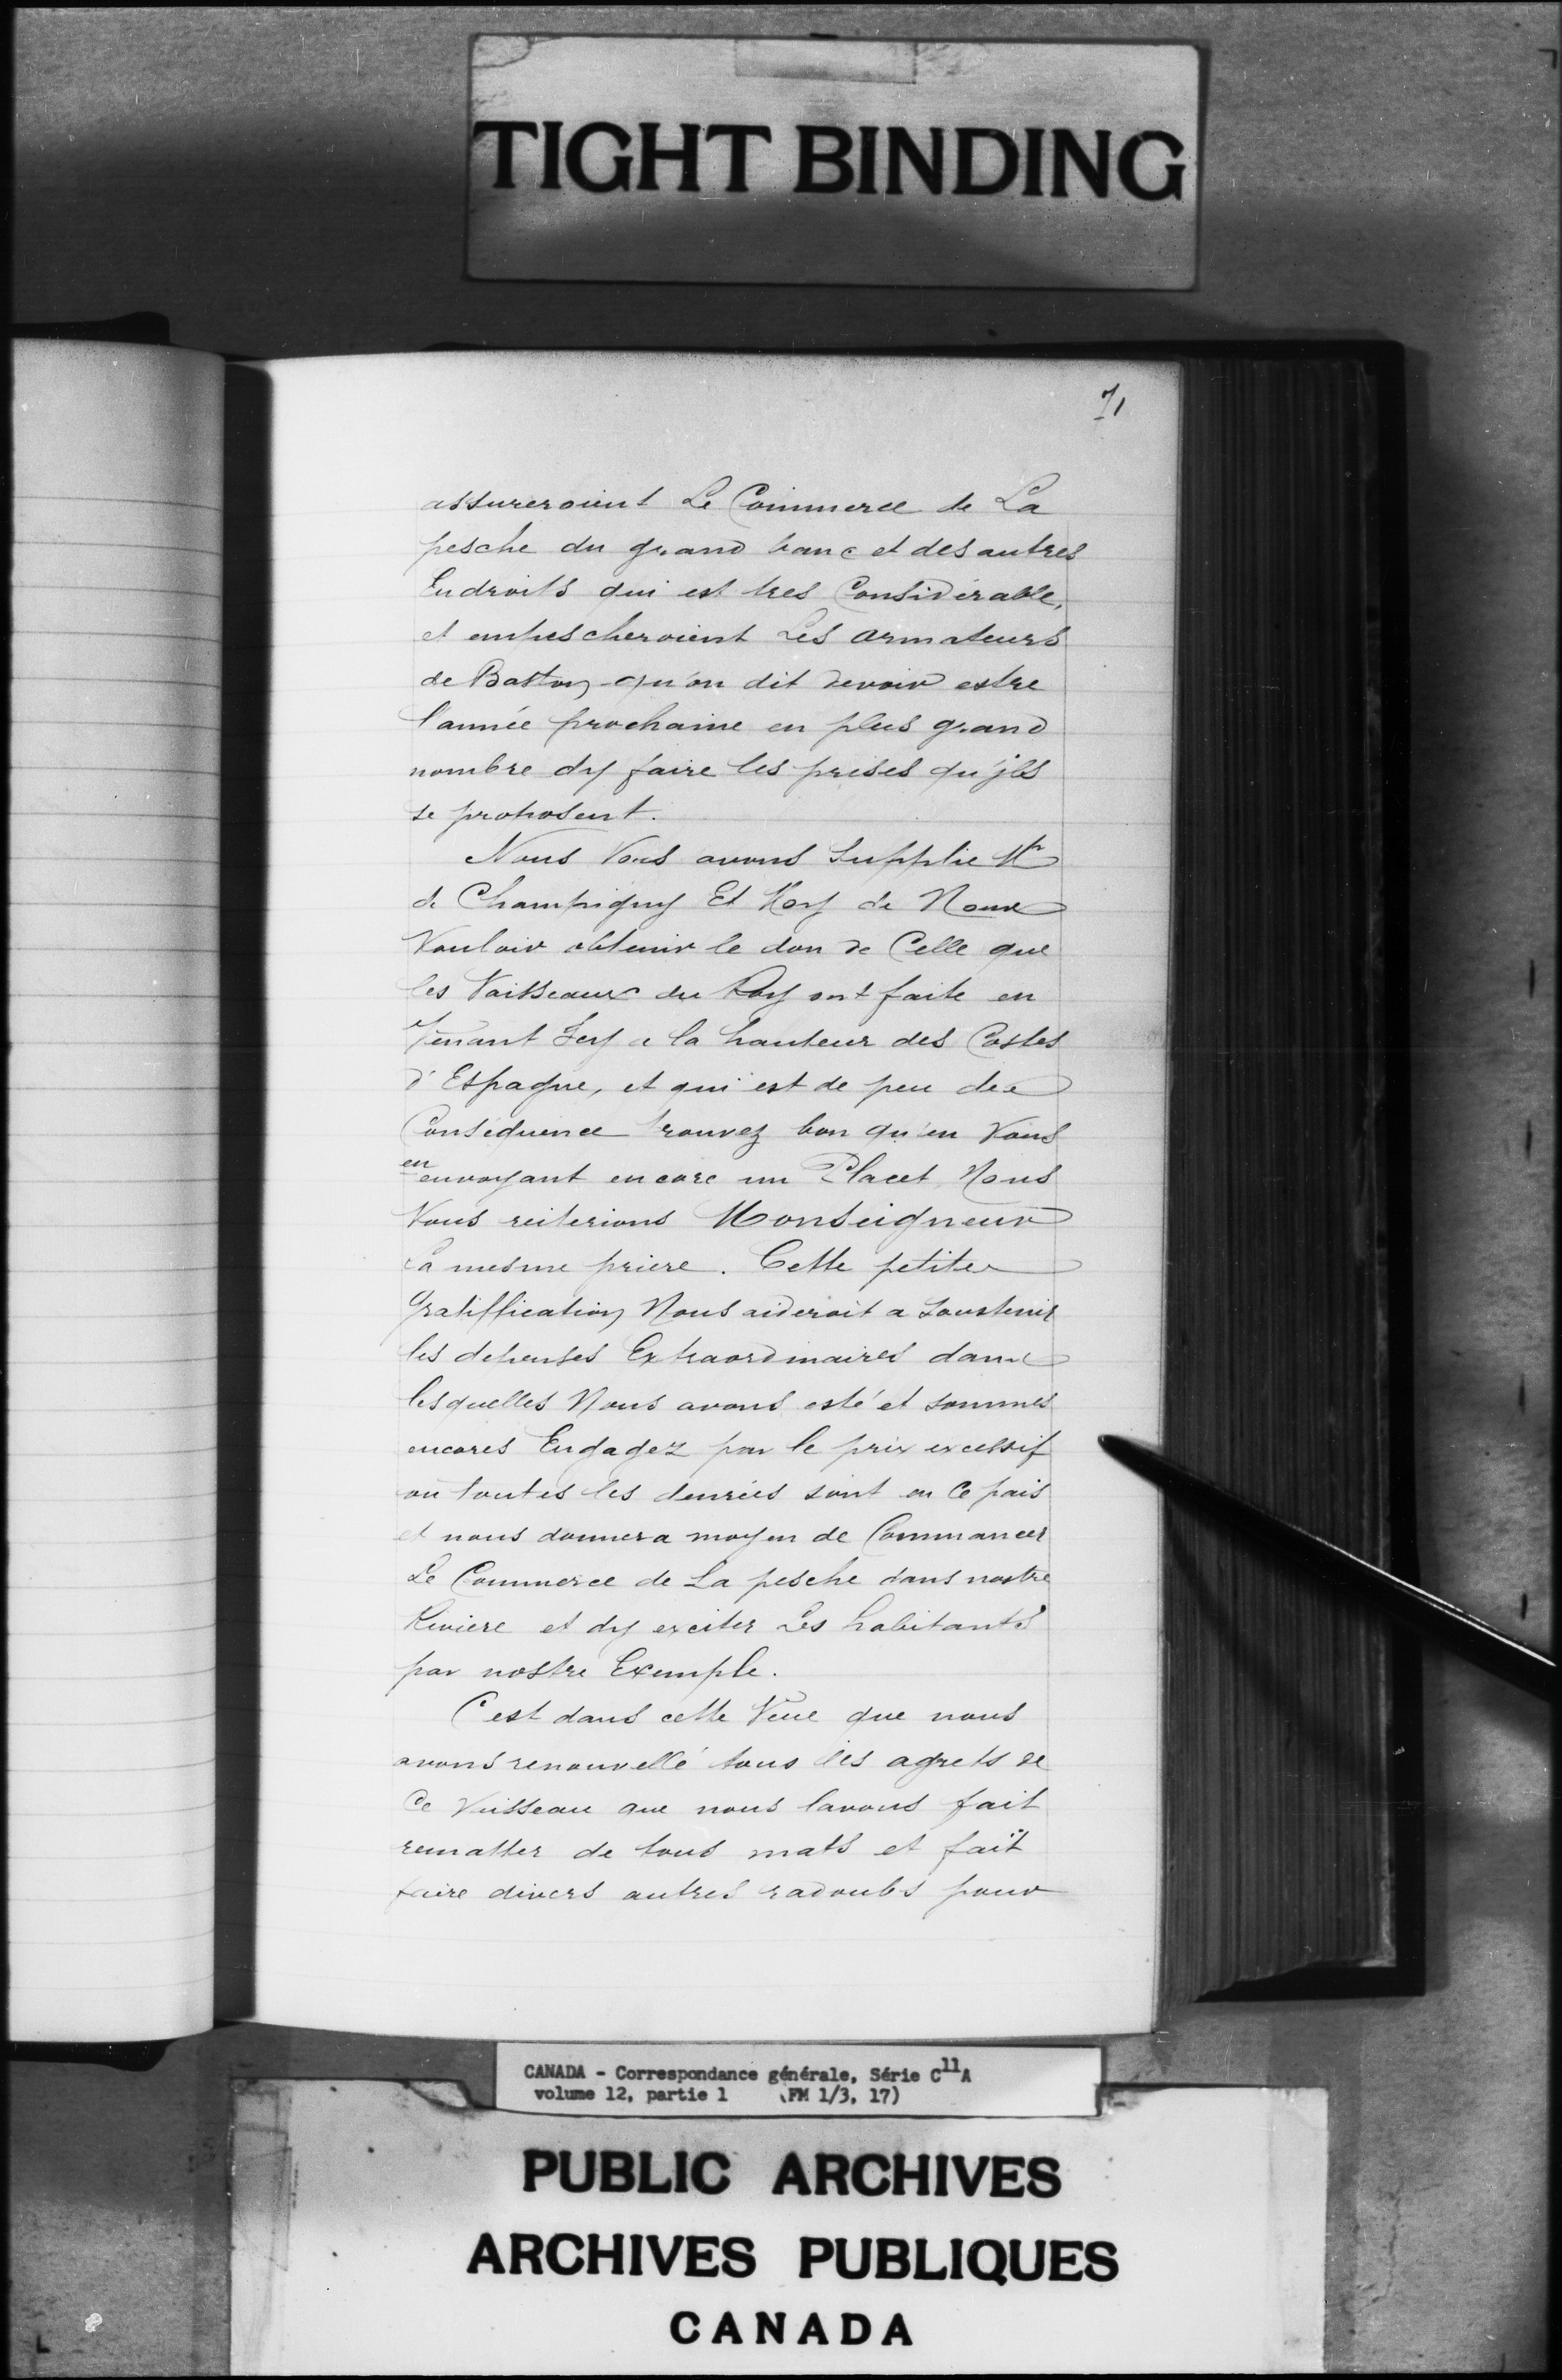 TIGHT BINDING
71
assureroient Le Commerce de La
pesche du grand banc et des autres
Endroits qui est tres Considerable,
et empescheroient Les armateurs
de Baston qu'on dit devoir estre
l'année prochaine en plus grand
nombre dy faire les prises qu'jls
se proposent.
Nous Vous avons Supplie Mr
de Champigny Et Moy de Nous
Vouloir obtenir le don de Celle que
les Vaisseaux du Roy ont faite en
Venant Jcy a la hauteur des Costes
d'Espagne, et qui est de peu de
Conséquence trouvez bon qu'en Vous
en envoyant encore un Placet Nous
Vous reiterions Monseigneur
La mesme priere. Cette petite
Gratiffication Nous aideroit a Soustenir
les depenses Extraordinaires dans
lesquelles Nous avons esté et sommes
encores Engagez par le prix excessif
ou toutes les denrées sont en Ce pais
et nous donnera moyen de Commancer
Le Commerce de La pesche dans nostre
Riviere et dy exciter Les habitants
par nostre Exemple.
C'est dans cette Veue que nous
avons renouvellé tous les agrets de
Ce Vaisseau que nous lavons fait
rematter de tous mats et fait
faire divers autres radoubs pour
CANADA - Correspondance générale, Série C11A
volume 12, partie 1 (FM 1/3, 17)
PUBLIC ARCHIVES
ARCHIVES PUBLIQUES
CANADA